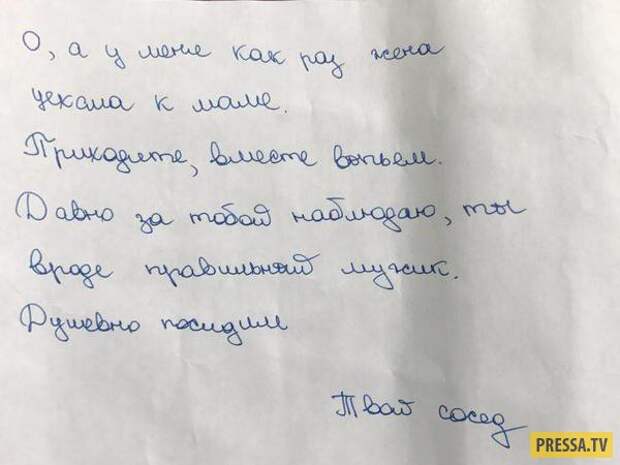 О, а у меня как раз жена
уехала к маме.
Приходите, вместе выпьем.
Давно за тобой наблюдаю, ты
вроде правильный мужик.
Душевно посидим
Твой сосед
PRESSA.TV